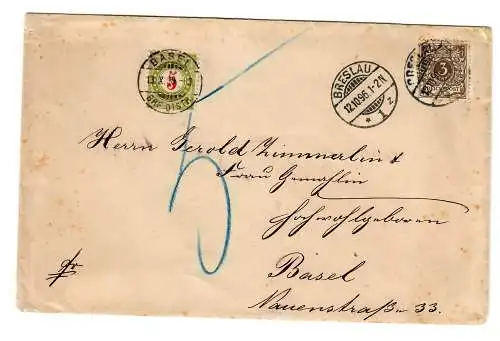 BASEL
5
BRESLAU
12.10.96.1-2N
* 1 z
3
5
Herrn Gerold Zimmerlin &
Frau Gemahlin
Hochwohlgeboren
Basel
Nauenstraße 33.
fr